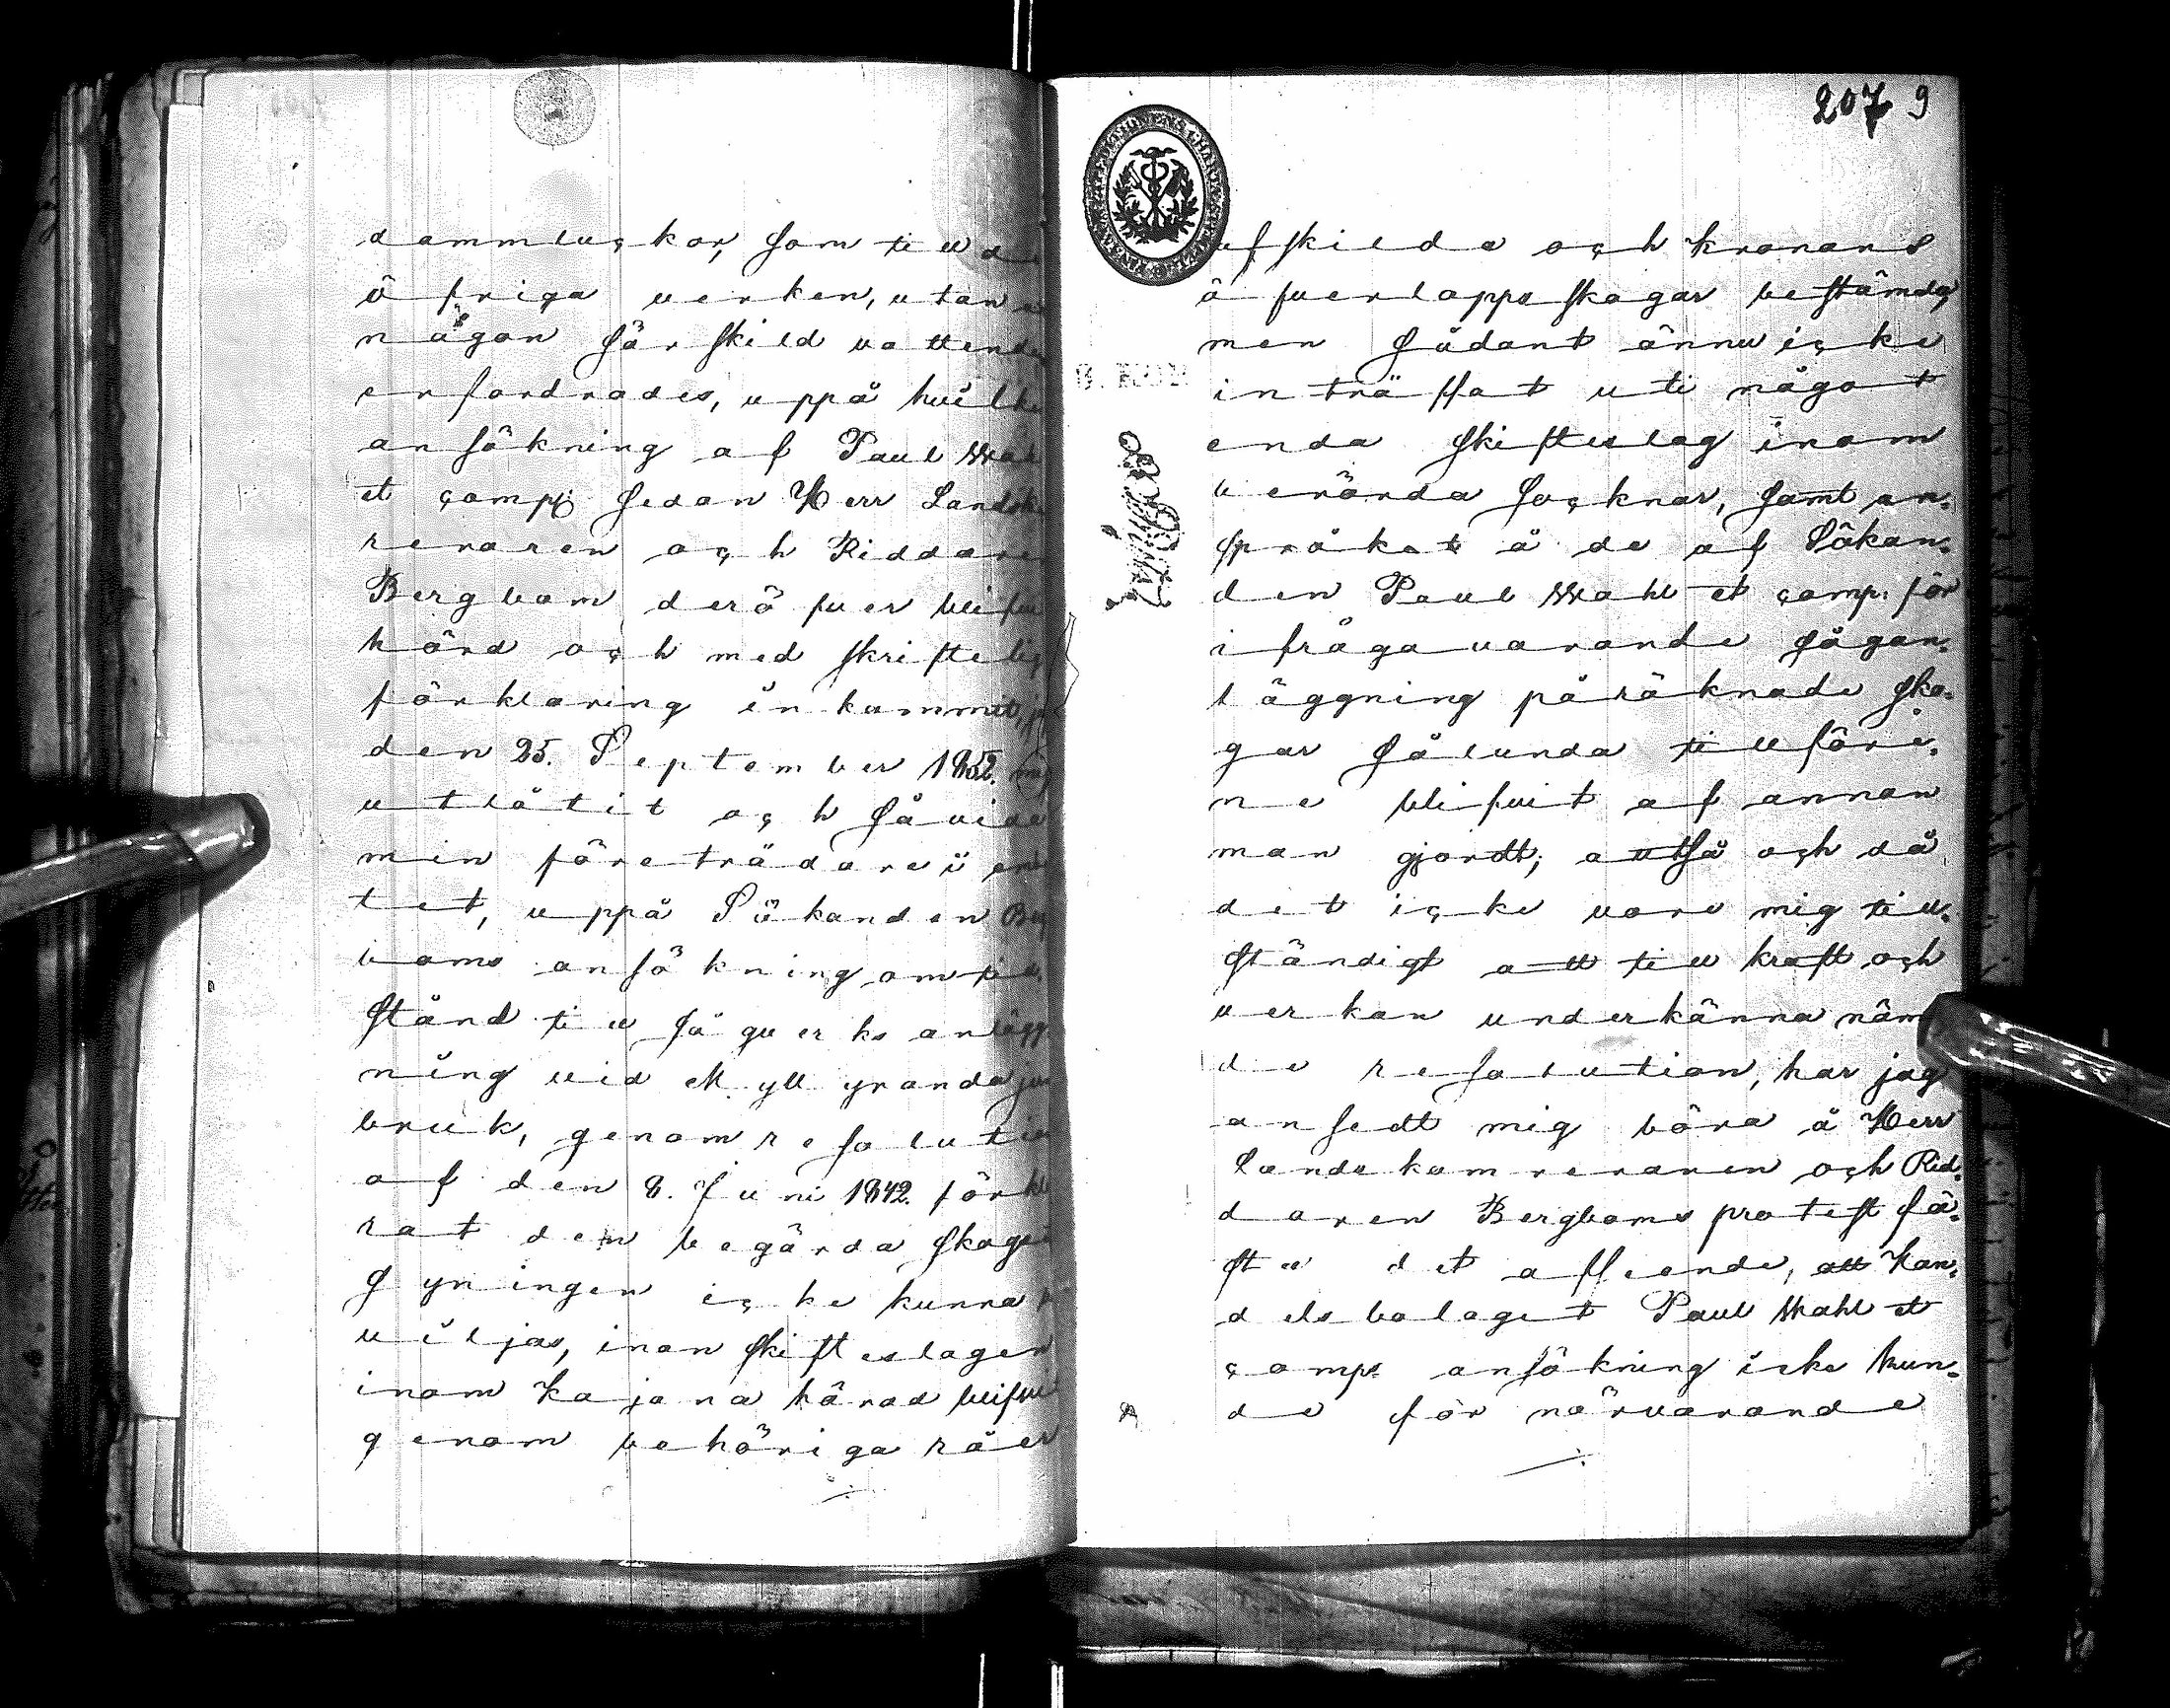 dammluckor, som till de
öfriga verken, utan
någon särskild vattende
erfordrades, uppå hvilke
ansökning af Paul Wahl
et comp; sedan Herr Landtka
reraren och Riddare
Bergbom deröfver blifvi
hörd och med skriftelig
förklaring inkommit,
den 25. September 1852.
utlåtit och såvida
min företrädare i em
tet, uppå Sökanden Berg
boms ansökning om till
stånd till sågverks anlägg
ning vid Myllyranda
bruk, genom resolutio
af den 8. Juni 1842. förkl
rat den begärda skogs
syningen icke kunna
viljas, innan skifteslagen
inom Kajana härad blifvi
genom behöriga råer
207 9
afskilda och kronans
öfverlopps skogar bestämda,
men sådant ännu icke
inträffat uti något
enda skifteslag inom
berörda socknar, samt an-
språket å de af Sökan-
den Paul Wahl et comp. för
ifrågavarande sågan-
läggning påräknade sko-
gar sålunda tillföre-
ne blifvit af annan
man gjordt; alltså och då
det icke vore mig till-
ständigt att till kraft och
verkan underkänna näm
de resolution, har jag
ansedt mig böra å Herr
Landskamreraren och Rid-
daren Bergboms protest fä-
sta det afseende, att Han-
delsbolaget Paul Wahl et
comps ansökning icke kun-
de för närvarande